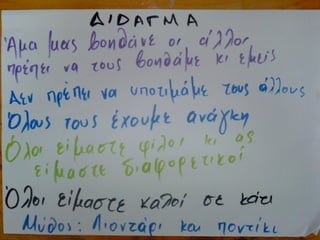 ΔΙΔΑΓΜΑ
Άμα μας βοηθάνε οι άλλοι
πρέπει να τους βοηθάμε κι εμείς
Δεν πρέπει να υποτιμάμε τους άλλους
Όλους τους έχουμε ανάγκη
Όλοι είμαστε φίλοι κι ας
είμαστε διαφορετικοί
Όλοι είμαστε καλοί σε κάτι
Μύθος: Λιοντάρι και ποντίκι